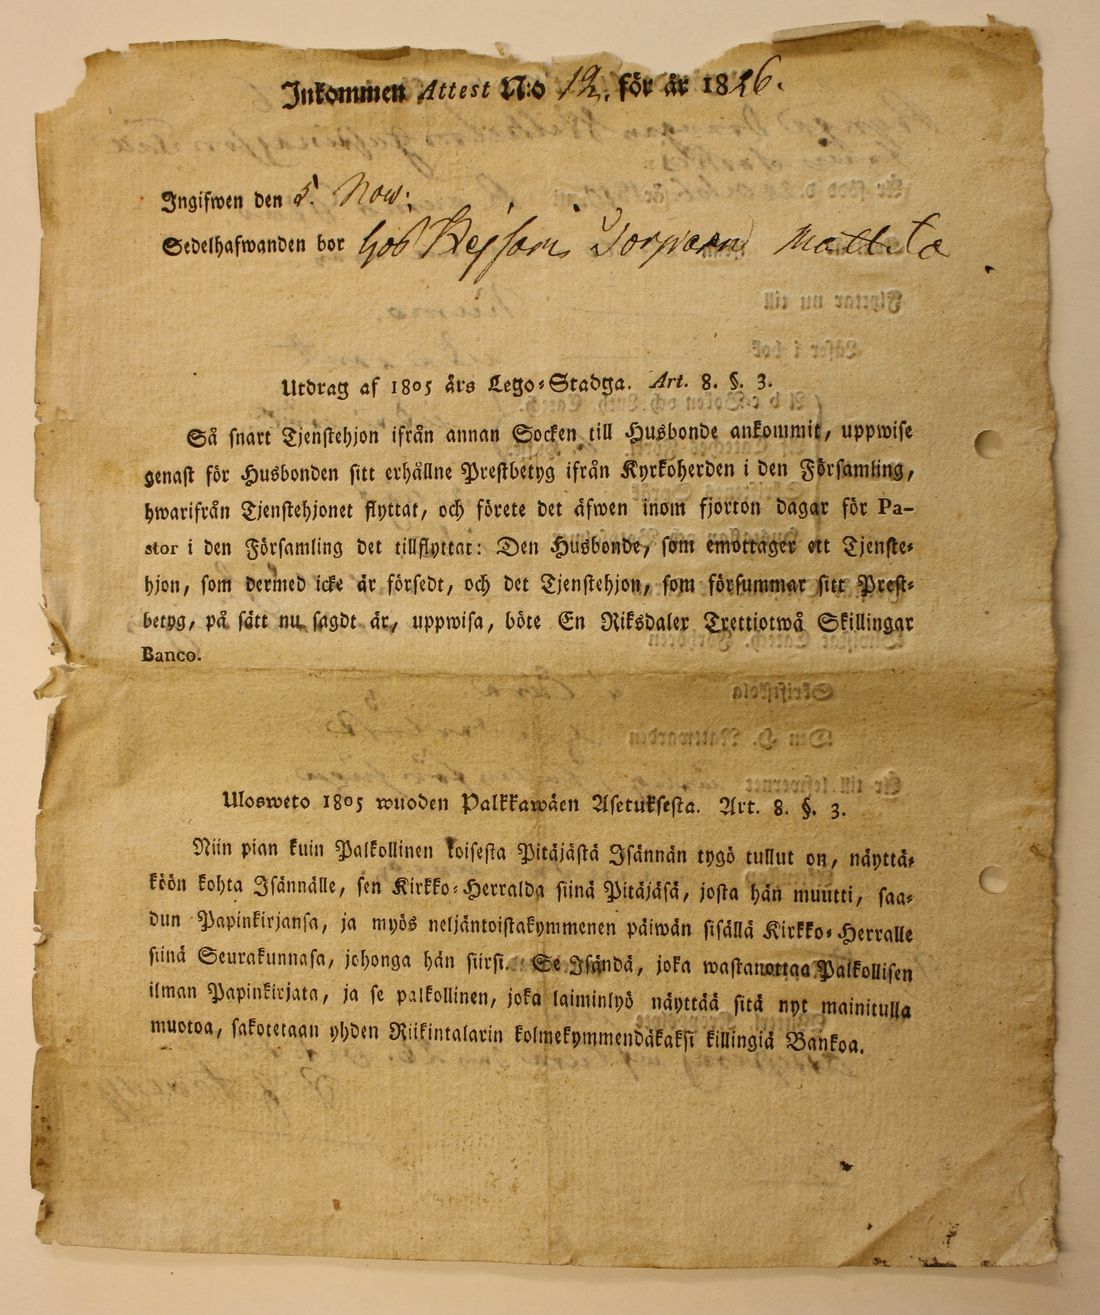 Inkommen Attest N:o 12. för år 1826.
Ingifwen den 5 Now:
Sedelhafwanden bor hos Torparn Mattila
Utdrag af 1805 års Lego-Stadga. Art. 8. §. 3.
Så snart Tjenstehjon ifrån annan Socken till Husbonde ankommit, uppwise
genast för Husbonden sitt erhållne Prestbetyg ifrån Kyrkoherden i den Församling,
hwarifrån Tjenstehjonet flyttat, och förete det äfwen inom fjorton dagar för Pa-
stor i den Församling det tillflyttat: Den Husbonde, som emottager ett Tjenste-
hjon, som dermed icke är försedt, och det Tjenstehjon, som försummar sitt Prest-
betyg, på sätt nu sagdt är, uppwisa, böte En Riksdaler Trettiotwå Skillingar
Banco.
Ulosweto 1805 wuoden Palkkawäen Asetuksesta. Art. 8. §. 3.
Niin pian kuin Palkollinen toisesta Pitäjästä Isännän tygö tullut on, näyttä-
köön kohta Isännälle, sen Kirkko-Herralda siinä Pitäjäsä, josta hän muutti, saa-
dun Papinkirjansa, ja myös neljäntoistakymmenen päiwän sisällä Kirkko-Herralle
siinä Seurakunnasa, johonga hän siirsi. Se Isändä, joka wastanottaa Palkollisen
ilman Papinkirjata, ja se palkollinen, joka laiminlyö näyttää sitä nyt mainitulla
muotoa, sakotetaan yhden Riikintalarin kolmekymmendäkaksi killingiä Bankoa.